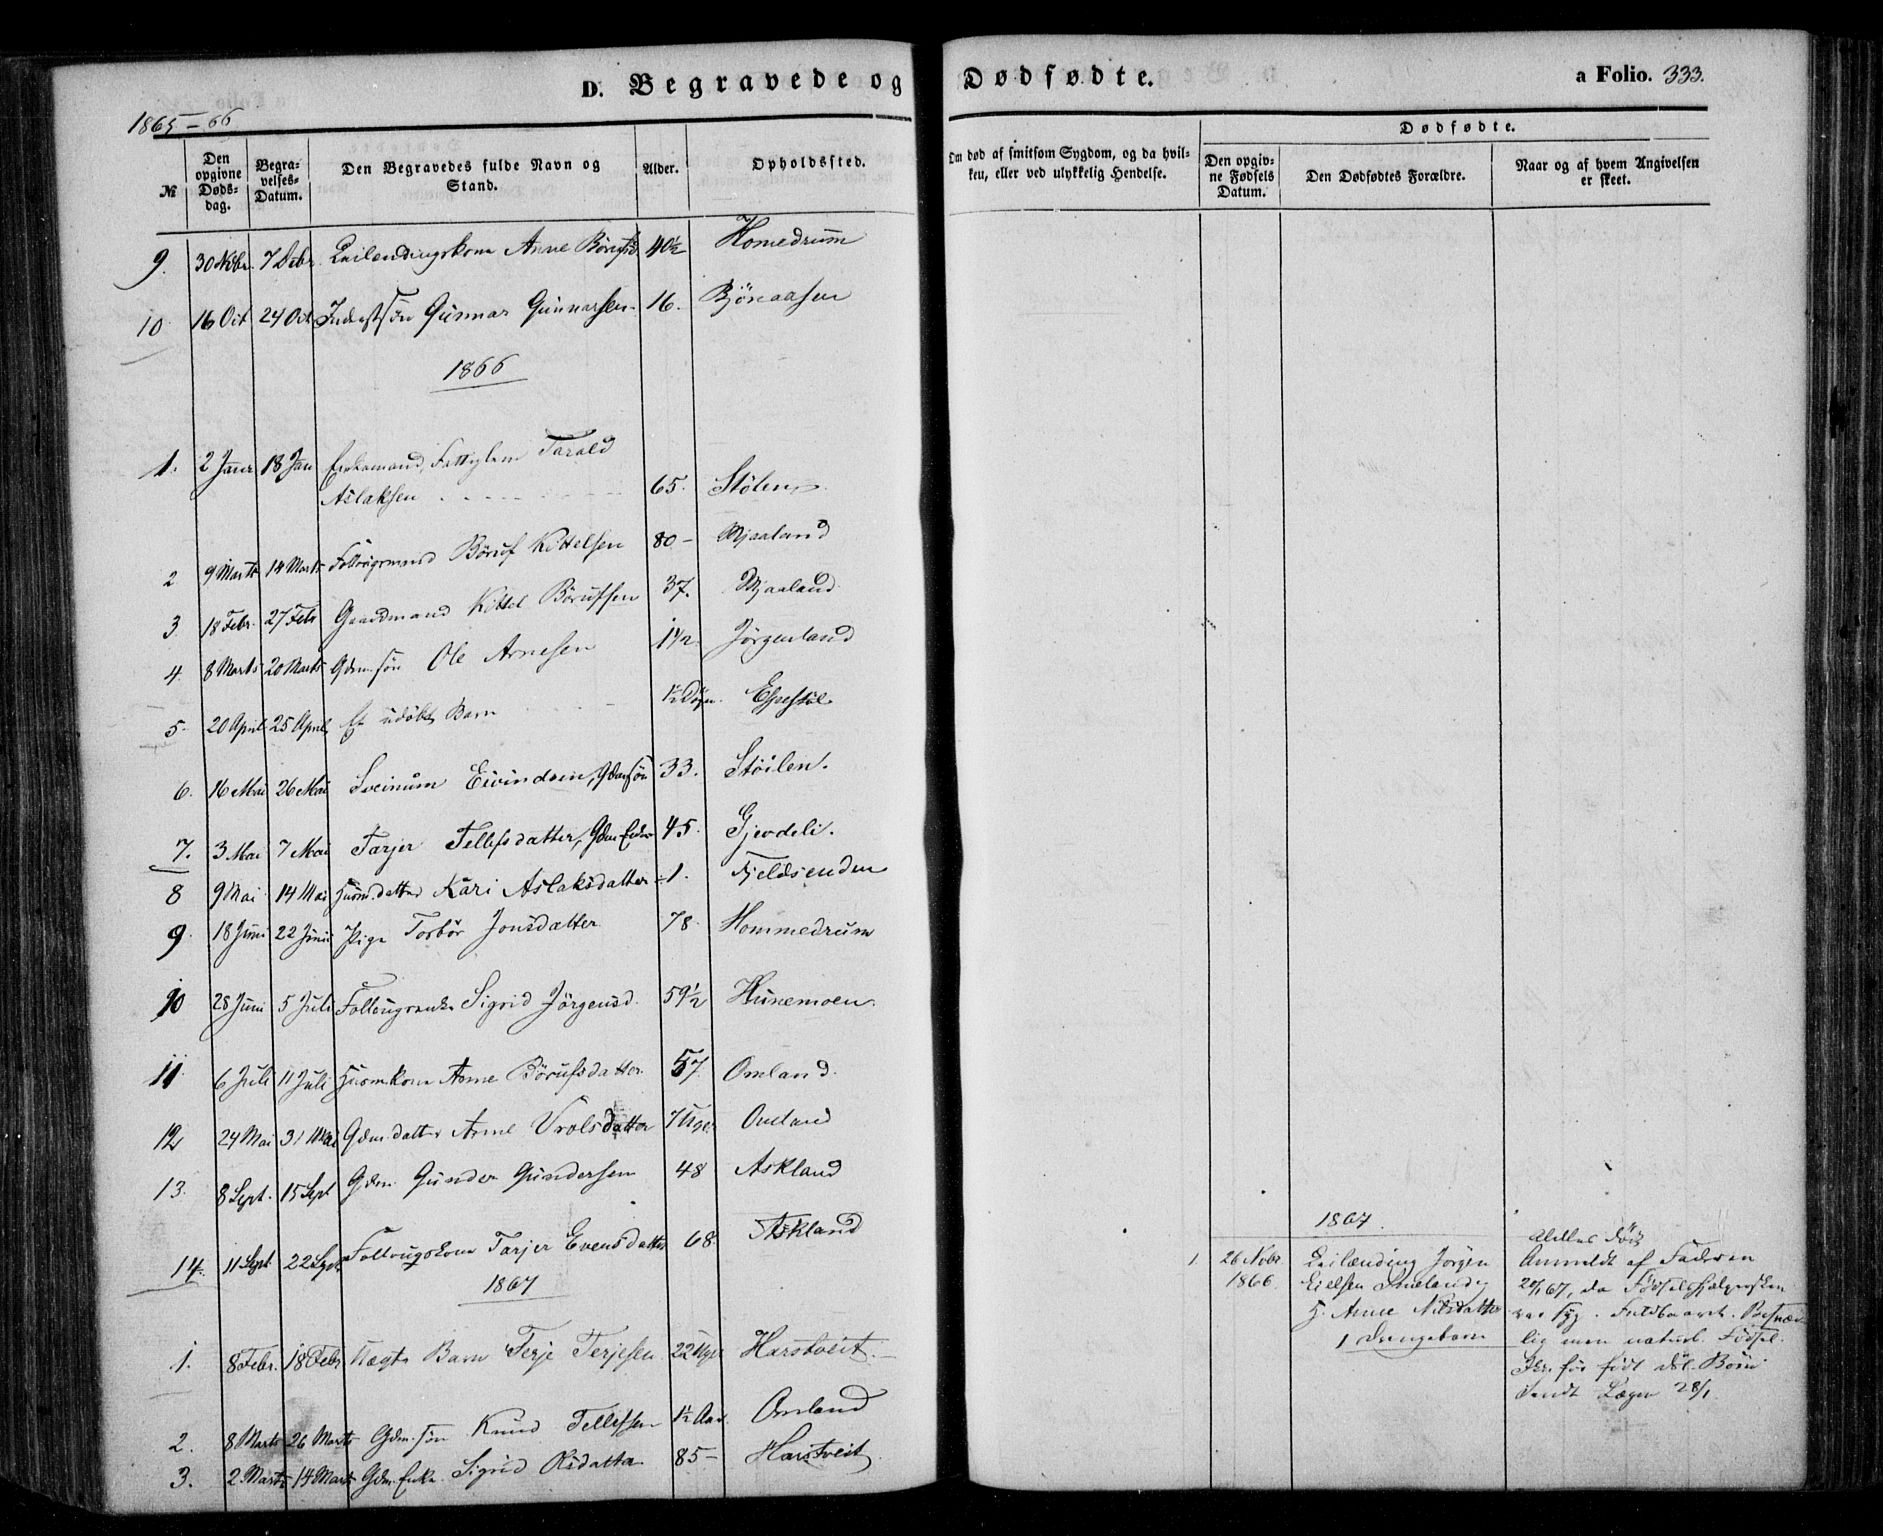 D. Begravede og Dødfødte.
a Folio. 333.
1865-66
№
Den opgivne Døds-dag.
Begra-velses-Datum.
Den Begravedes fulde Navn og Stand.
Alder.
Opholdssted.
Om død af smitsom Sygdom, og da hvil-ken, eller ved ulykkelig Hendelse.
Dødfødte.
Den opgiv-ne Fødsels Datum.
Den Dødfødtes Forældre.
Naar og af hvem Angivelsen er skeet.
9. 30 Nbr. 7 Debr. Leilendingskone Anne Börufsd 40½ Homedrum
10. 16 Oct 24 Oct Inderstsön Gunnar Gunnarsen 16. Bjönaasen
1866
1. 2 Janr 18 Jan Enkemand, Fattiglem Tarald
Aslaksen 65. Stölen
2 9 Marts 14 Marts Follougsmand Böruf Kittelsen 80 - Mjaaland
3 18 Febr. 27 Feb Gaardmand Kittel Börufsen 37. Mjaaland
4. 8 Marts 20 Marts Gdm. sön Ole Arnesen 1½ Jörgenland
5. 20 April 25 April Et udöbt Barn ½ Dögn. Espestöl
6. 16 Mai 26 Mai Sveinum Eivindsen, Gdmsön 33. Stöilen.
7. 3 Mai 7 Mai Tarjer Tellefsdatter, Gdm Enke 45. Gjevdeli.
8 9 Mai 14 Mai Husm. datter Kari Aslaksdatter 1. Fjeldsenden
9. 18 Juni 22 Juni Pige Torbör Jonsdatter 78. Hommedrum
10 28 Juni 5 Juli Follougsenke Sigrid Jörgensd. 59½ Hunemoen.
11. 6 Juli 11 Juli Husmkone Anne Börufsdatter 57. Omland.
12 24 Mai 31 Mai Gdm. datter Anne Vrolsdatter 7 Uger Omland
13. 8 Sept. 15 Sept Gdm. Gunder Gundersen 48 Askland
14. 11 Sept. 22 Sept Follougskone Tarjer Evensdatter 68. Askland
1867
1. 8 Febr. 18 Febr Uægte Barn Terje Terjesen 22 Uger Harstveit.
2. 8 Marts 26 Marts Gdm. sön Knud Tellefsen 1½ Aar. Omland
3. 2 Marts 14 Marts Gdm. Enke Sigrid Olsdatter 85 - Harstveit.
1867.
1. 26 Nobr
1866.
Leilænding Jörgen
Eielsen
H. Anne Nilsdatter
1 Drengebarn
Anmeldt af Faderen
2/1 67, da Födselshjælpersken
var syg. Fuldbaaret.
lig men naturl. Födsel.
för födt Börn.
Sendt Lægen 28/1.